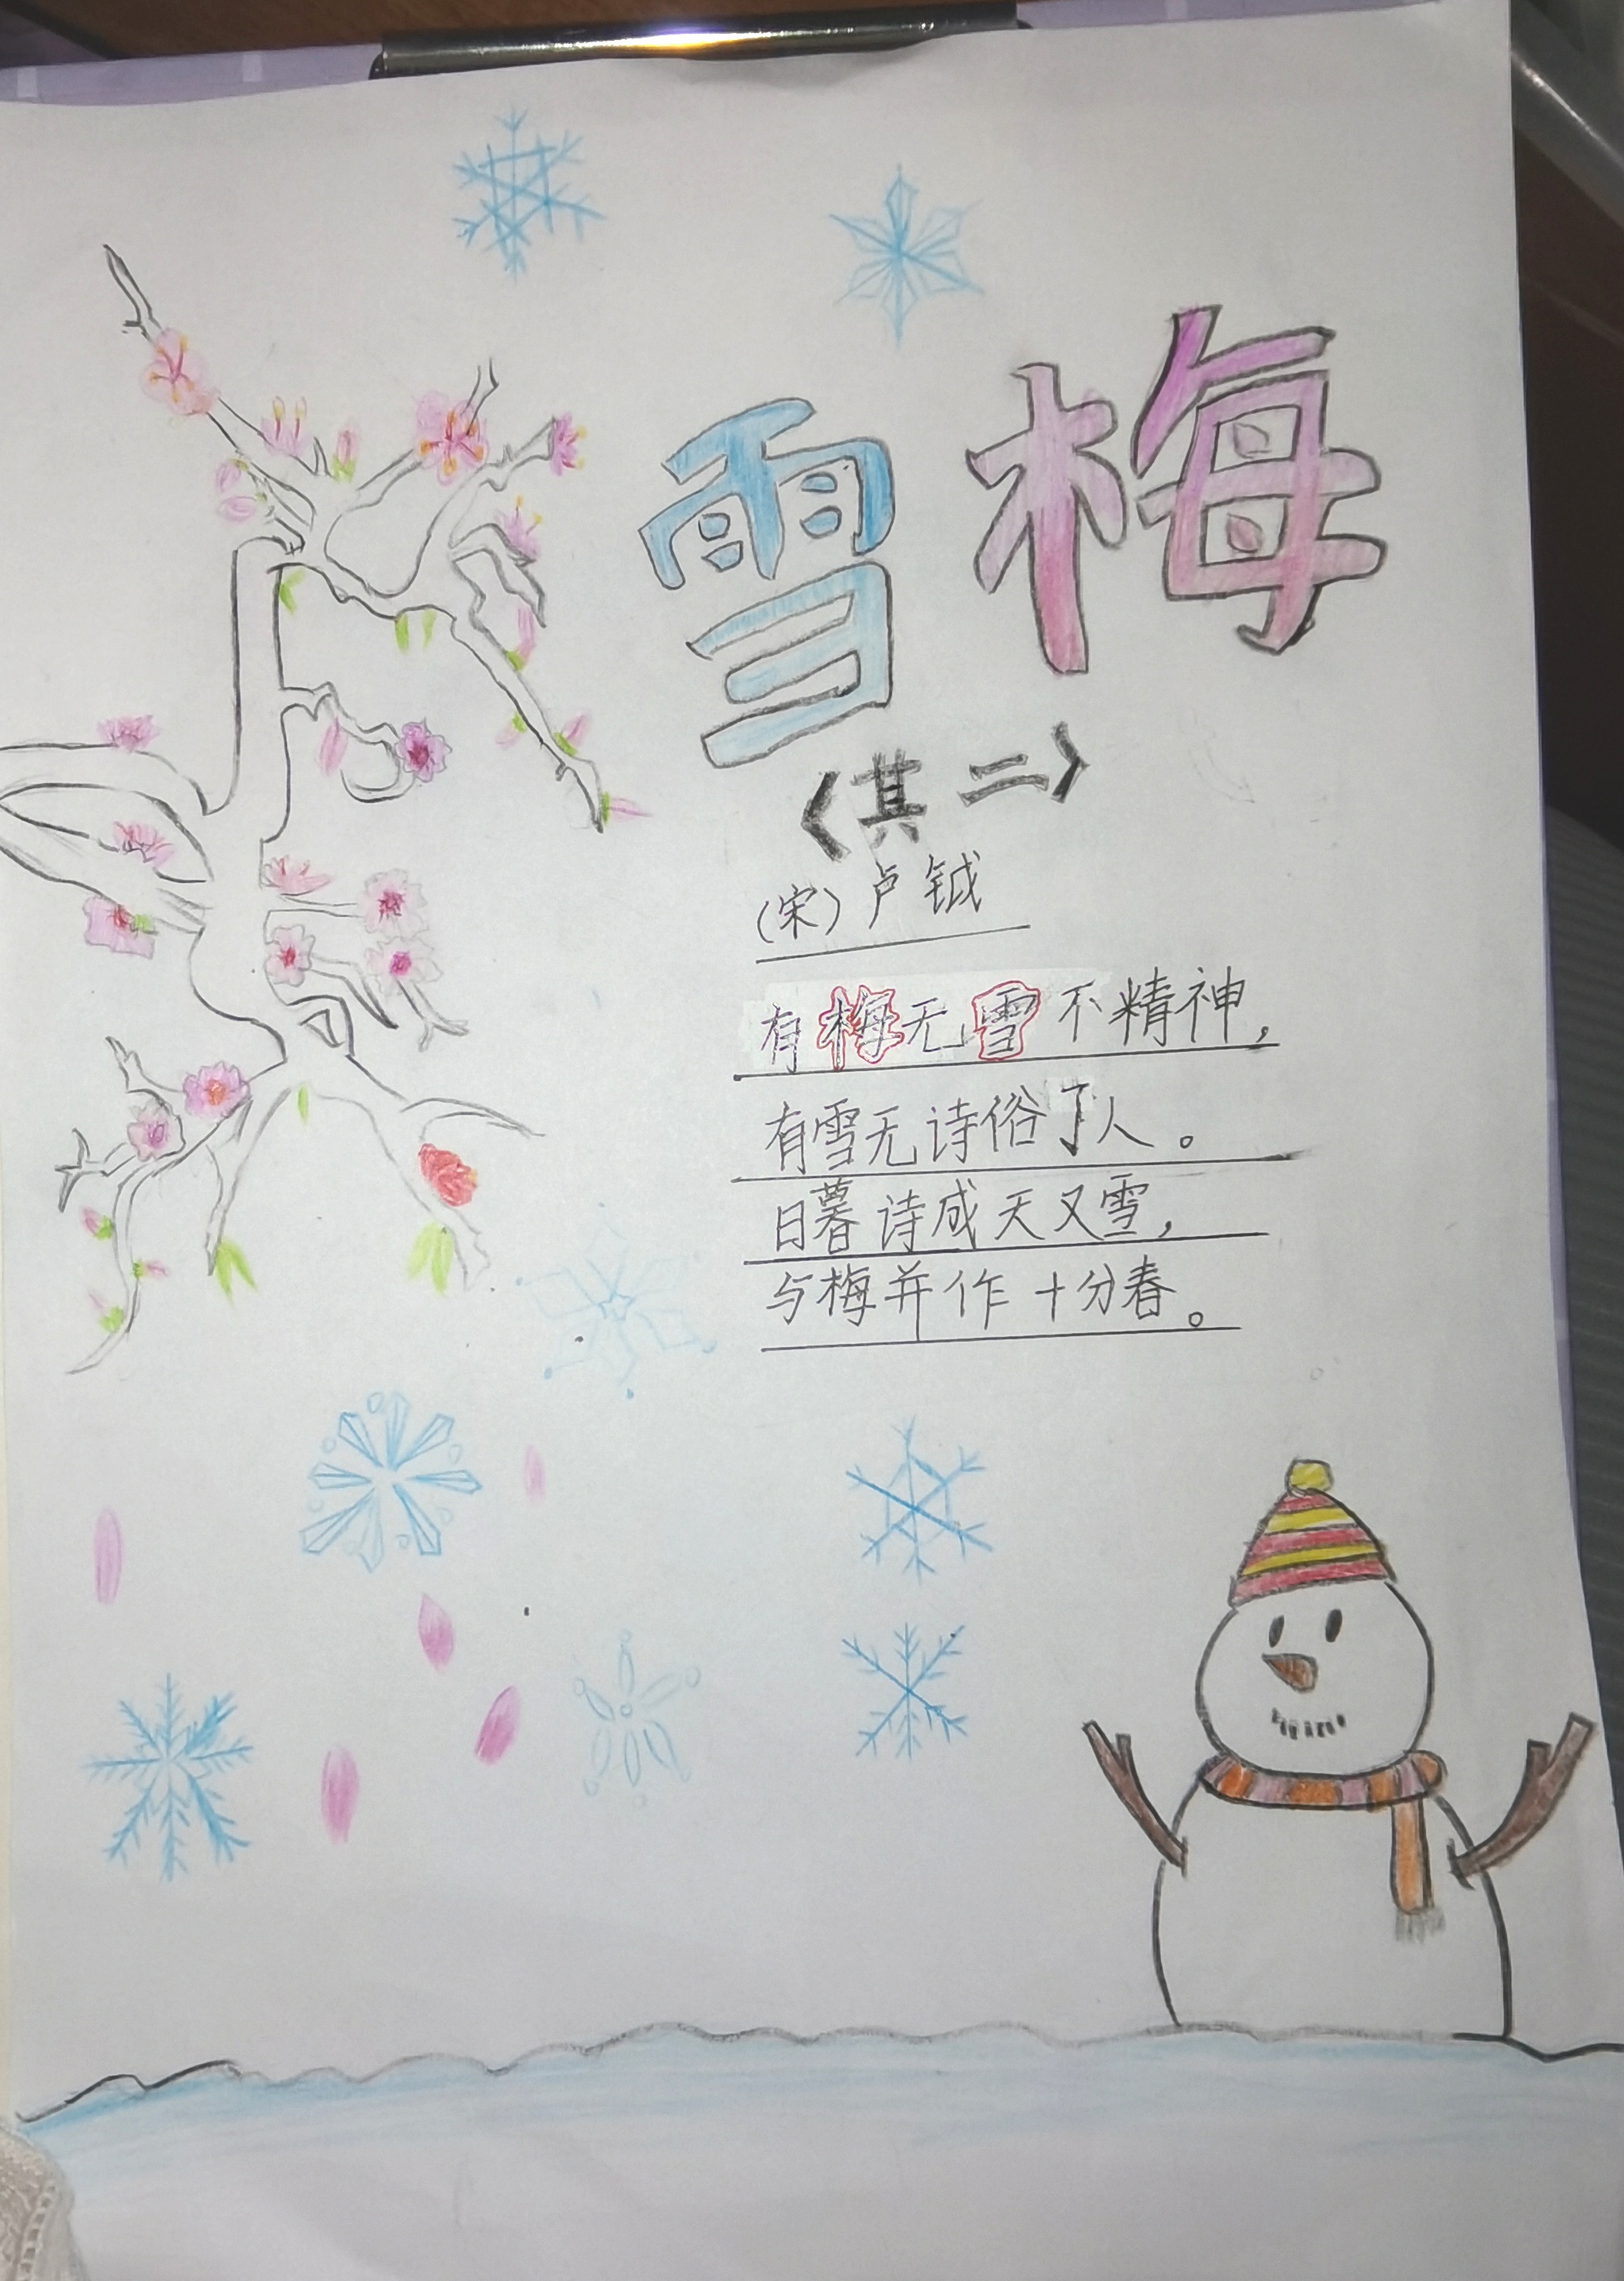 雪梅
〈其二〉
（宋）卢钺
有梅无雪不精神，
有雪无诗俗了人。
日暮诗成天又雪，
与梅并作十分春。